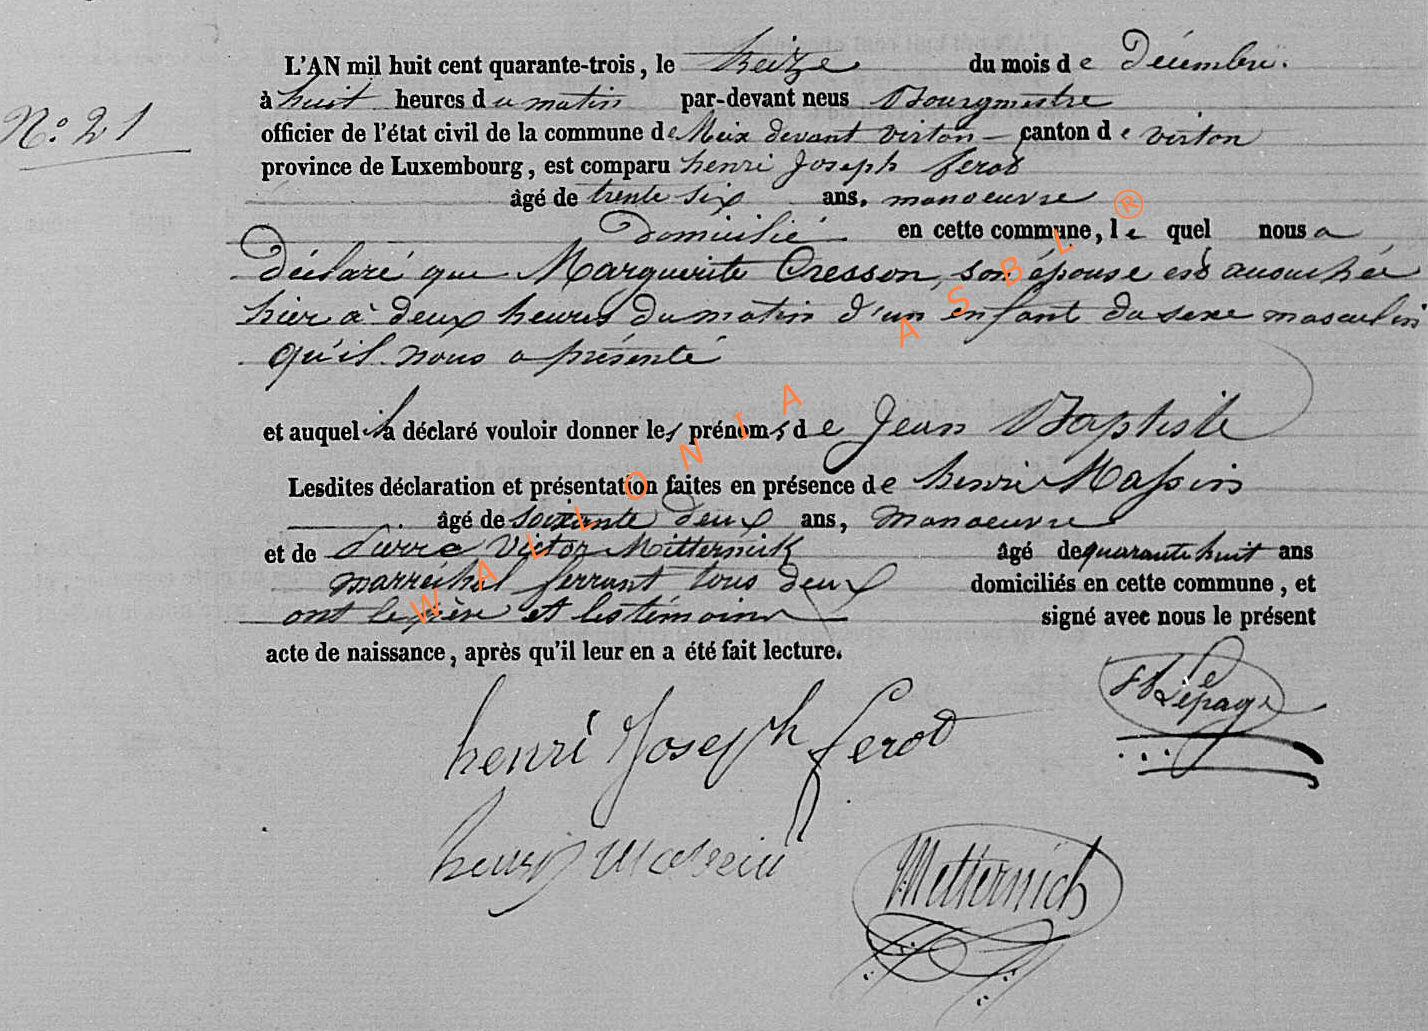 L'AN mil huit cent quarante-trois, le treize du mois de Décembre.
N.° 21
à huit heures du matin par-devant nous Bourgmestre
officier de l'état civil de la commune de Meix devant virton canton de virton
province de Luxembourg, est comparu henri Joseph ferot
âgé de trente six ans, manoeuvre
Domicilié en cette commune, lequel nous a
Déclaré que Marguerite Cresson, son épouse est accouchée
hier à deux heures du matin d'un enfant du sexe masculin
qu'il nous a présenté
et auquel il a déclaré vouloir donner les prénoms de Jean Baptiste
Lesdites déclaration et présentation faites en présence de henri Massin
âgé de soixante deux ans, manoeuvre
et de Pierre Victor Mitternick âgé de quarante huit ans
marréchal ferrant tous deux domiciliés en cette commune, et
ont le père et les témoins signé avec nous le présent
acte de naissance, après qu'il leur en a été fait lecture.
Lepage
henri Joseph ferot
henri Massin
Metternich
WALLONIA ASBL ®